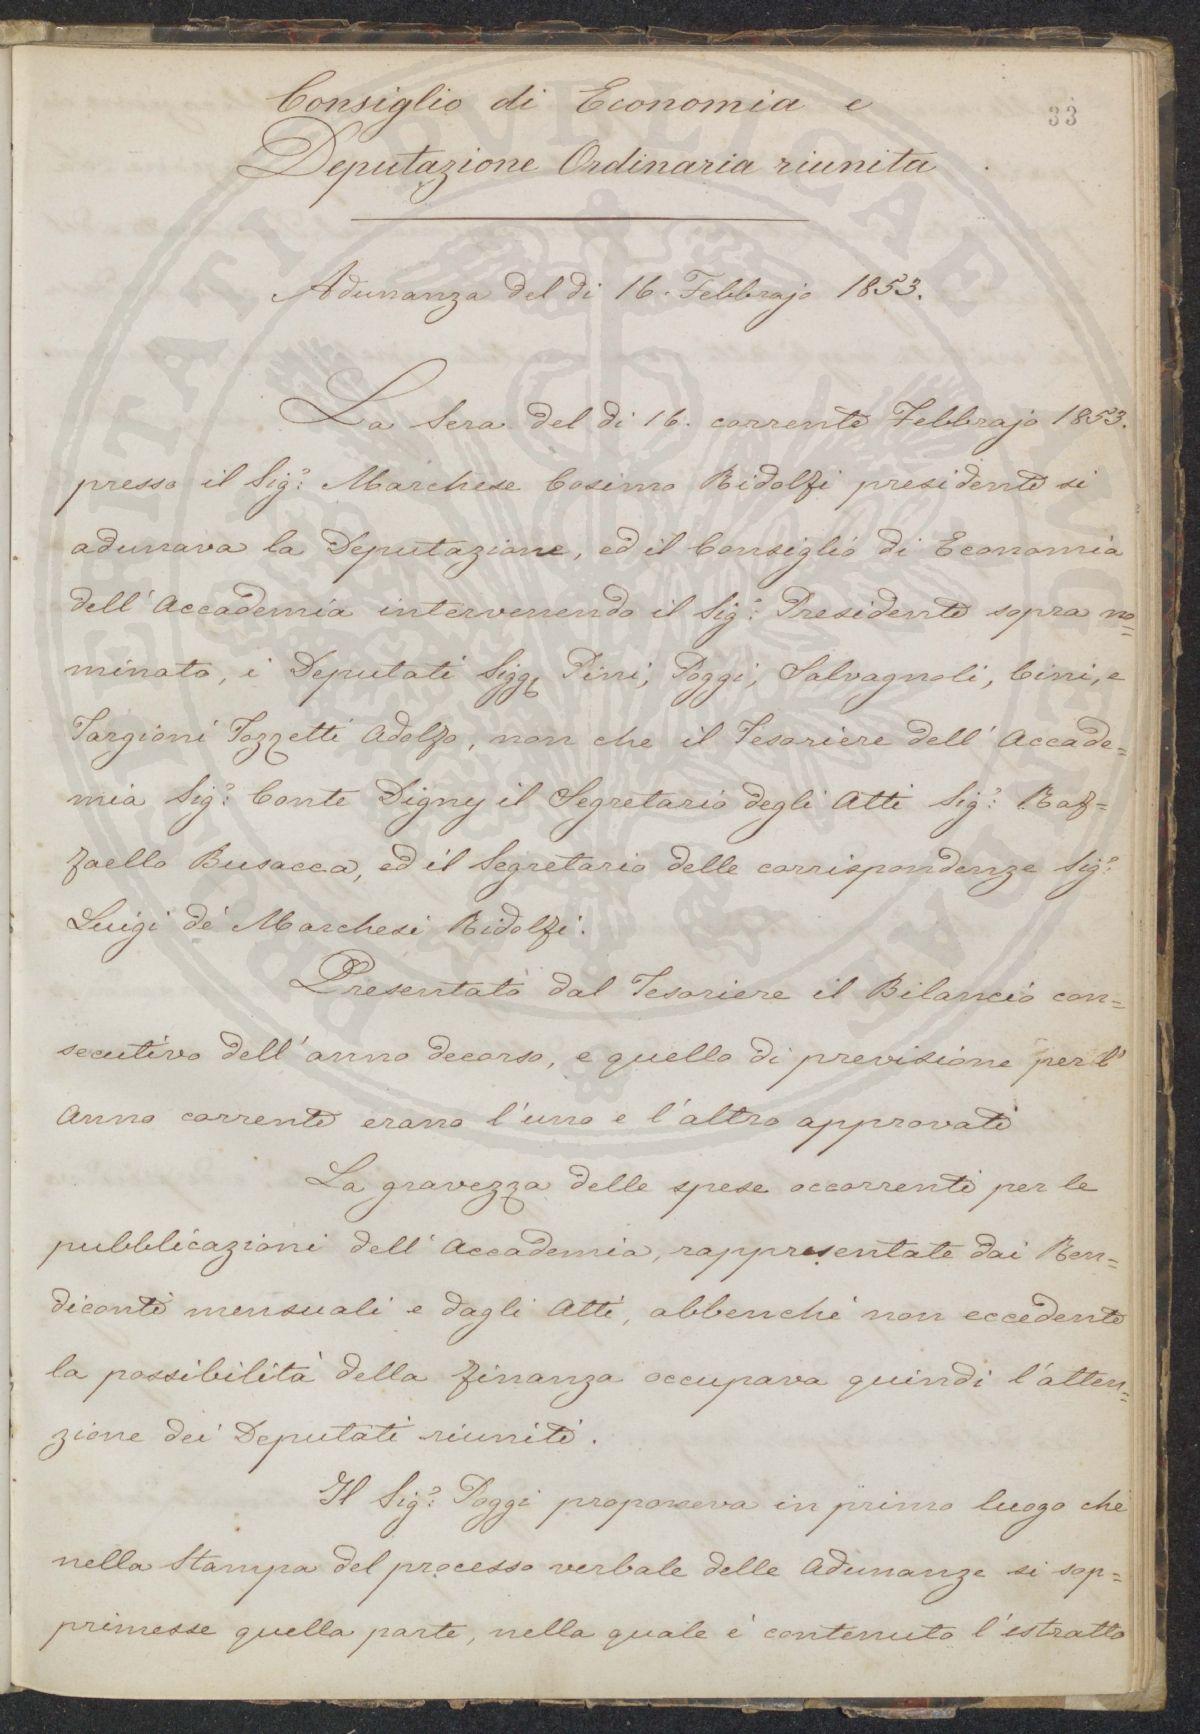 33
Consiglio di Economia e
Deputazione Ordinaria riunita
Adunanza del di 16. Febbrajo 1853.
La Sera del di 16. corrente Febbrajo 1853.
presso il Sig:r Marchese Cosimo Ridolfi presidente si
adunava la Deputazione, ed il Consiglio di Economia
dell'Accademia intervenendo il Sig:r Presidente sopra no=
minato, i Deputati Sigg. Pini, Poggi, Salvagnoli, Cini, e
Targioni Tozzetti Adolfo, non che il Tesoriere dell'Accade=
mia Sig:r Conte Digny il Segretario degli Atti Sig:r Raf=
faello Busacca, ed il Segretario delle corrispondenze Sig:r
Luigi de' Marchesi Ridolfi.
Presentato dal Tesoriere il Bilancio con=
secutivo dell'anno decorso, e quello di previsione per l'
Anno corrente erano l'uno e l'altro approvati
La gravezza delle spese occorrenti per le
pubblicazioni dell'Accademia, rappresentate dai Ren=
diconti mensuali e dagli Atti, abbenchè non eccedente
la possibilità della finanza occupava quindi l'atten=
zione dei Deputati riuniti.
Il Sig:r Poggi proponeva in primo luogo che
nella Stampa del processo verbale delle Adunanze si sop=
primesse quella parte, nella quale è contenuto l'estratto